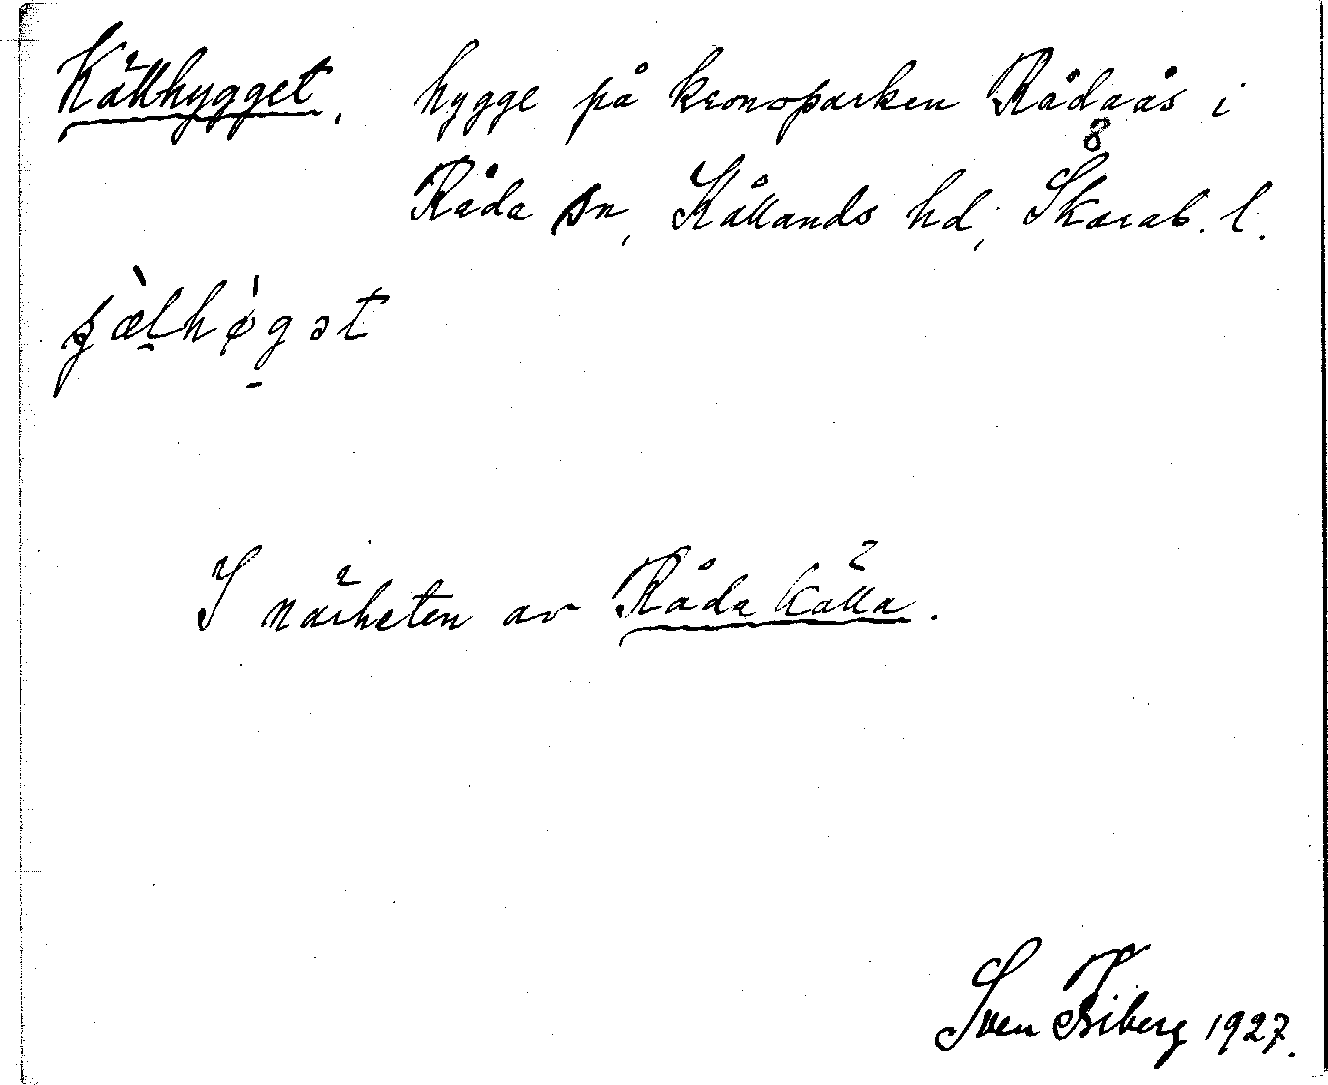 Källhygget, hygge på kronoparken Rådaås i
8
Råda sn, Kållands hd, Skarab. l.
I närheten av Råda källa.
Sven Friberg 1927.